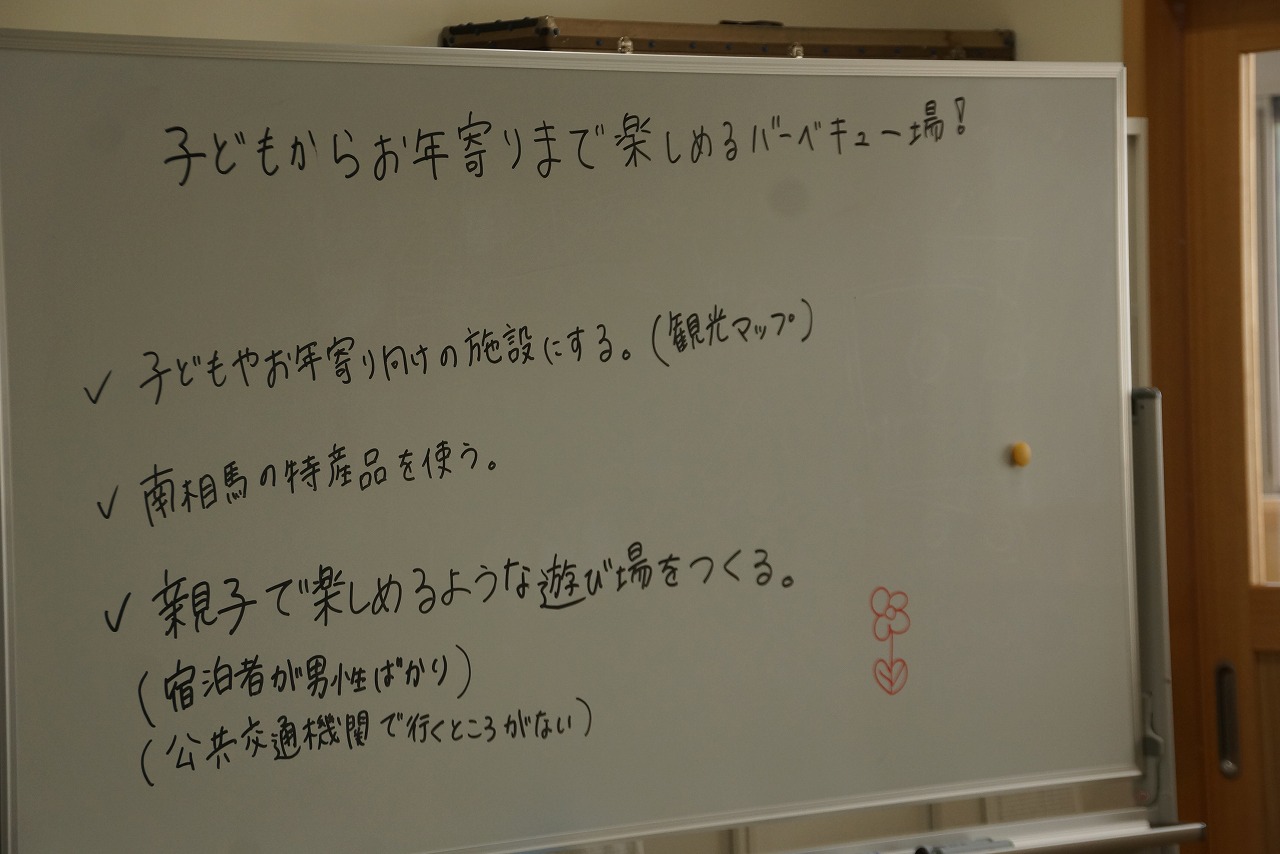 子どもからお年寄りまで楽しめるバーベキュー場!
✓ 子どもやお年寄り向けの施設にする。(観光マップ)
✓ 南相馬の特産品を使う。
✓ 親子で楽しめるような遊び場をつくる。
(宿泊者が男性ばかり)
(公共交通機関で行くところがない)